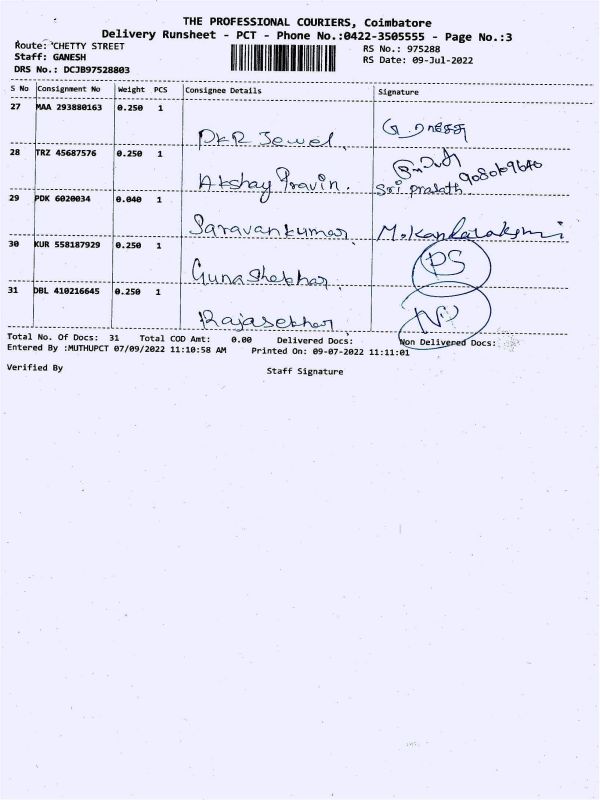 THE PROFESSIONAL COURIERS, Coimbatore
Delivery Runsheet - PCT - Phone No.:0422-3505555 - Page No.:3
Route: CHETTY STREET RS No.: 975288
Staff: GANESH RS Date: 09-Jul-2022
DRS No.: DCJB97528803
S No Consignment No Weight PCS Consignee Details Signature
27 MAA 293880163 0.250 1
PKR Jewel.
28 TRZ 45687576 0.250 1
Akshay Pravin. Sri prakath
29 PDK 6020034 0.040 1
Saravankumar.
30 KUR 558187929 0.250 1
PS
Gunashekhar.
31 DBL 410216645 0.250 1
Rajasekhar.
Total No. Of Docs: 31 Total COD Amt: 0.00 Delivered Docs: Non Delivered Docs:
Entered By :MUTHUPCT 07/09/2022 11:10:58 AM Printed On: 09-07-2022 11:11:01
Verified By Staff Signature